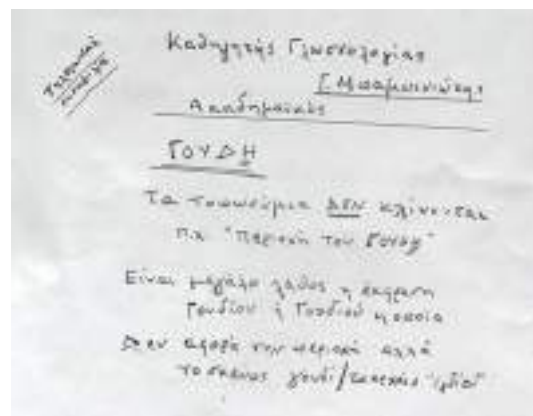 Τηλεφωνική
συνομιλία
Καθηγητής Γλωσσολογίας
Γ. Μπαμπινιώτης
Ακαδημαϊκός
ΓΟΥΔΗ
Τα τοπωνύμια ΔΕΝ κλίνονται
π.χ "Περιοχή του Γουδή"
Είναι μεγάλο λάθος η έκφραση
Γουδίου ή Γουδιού η οποία
Δεν αφορά την περιοχή αλλά
το σκεύος γουδί/